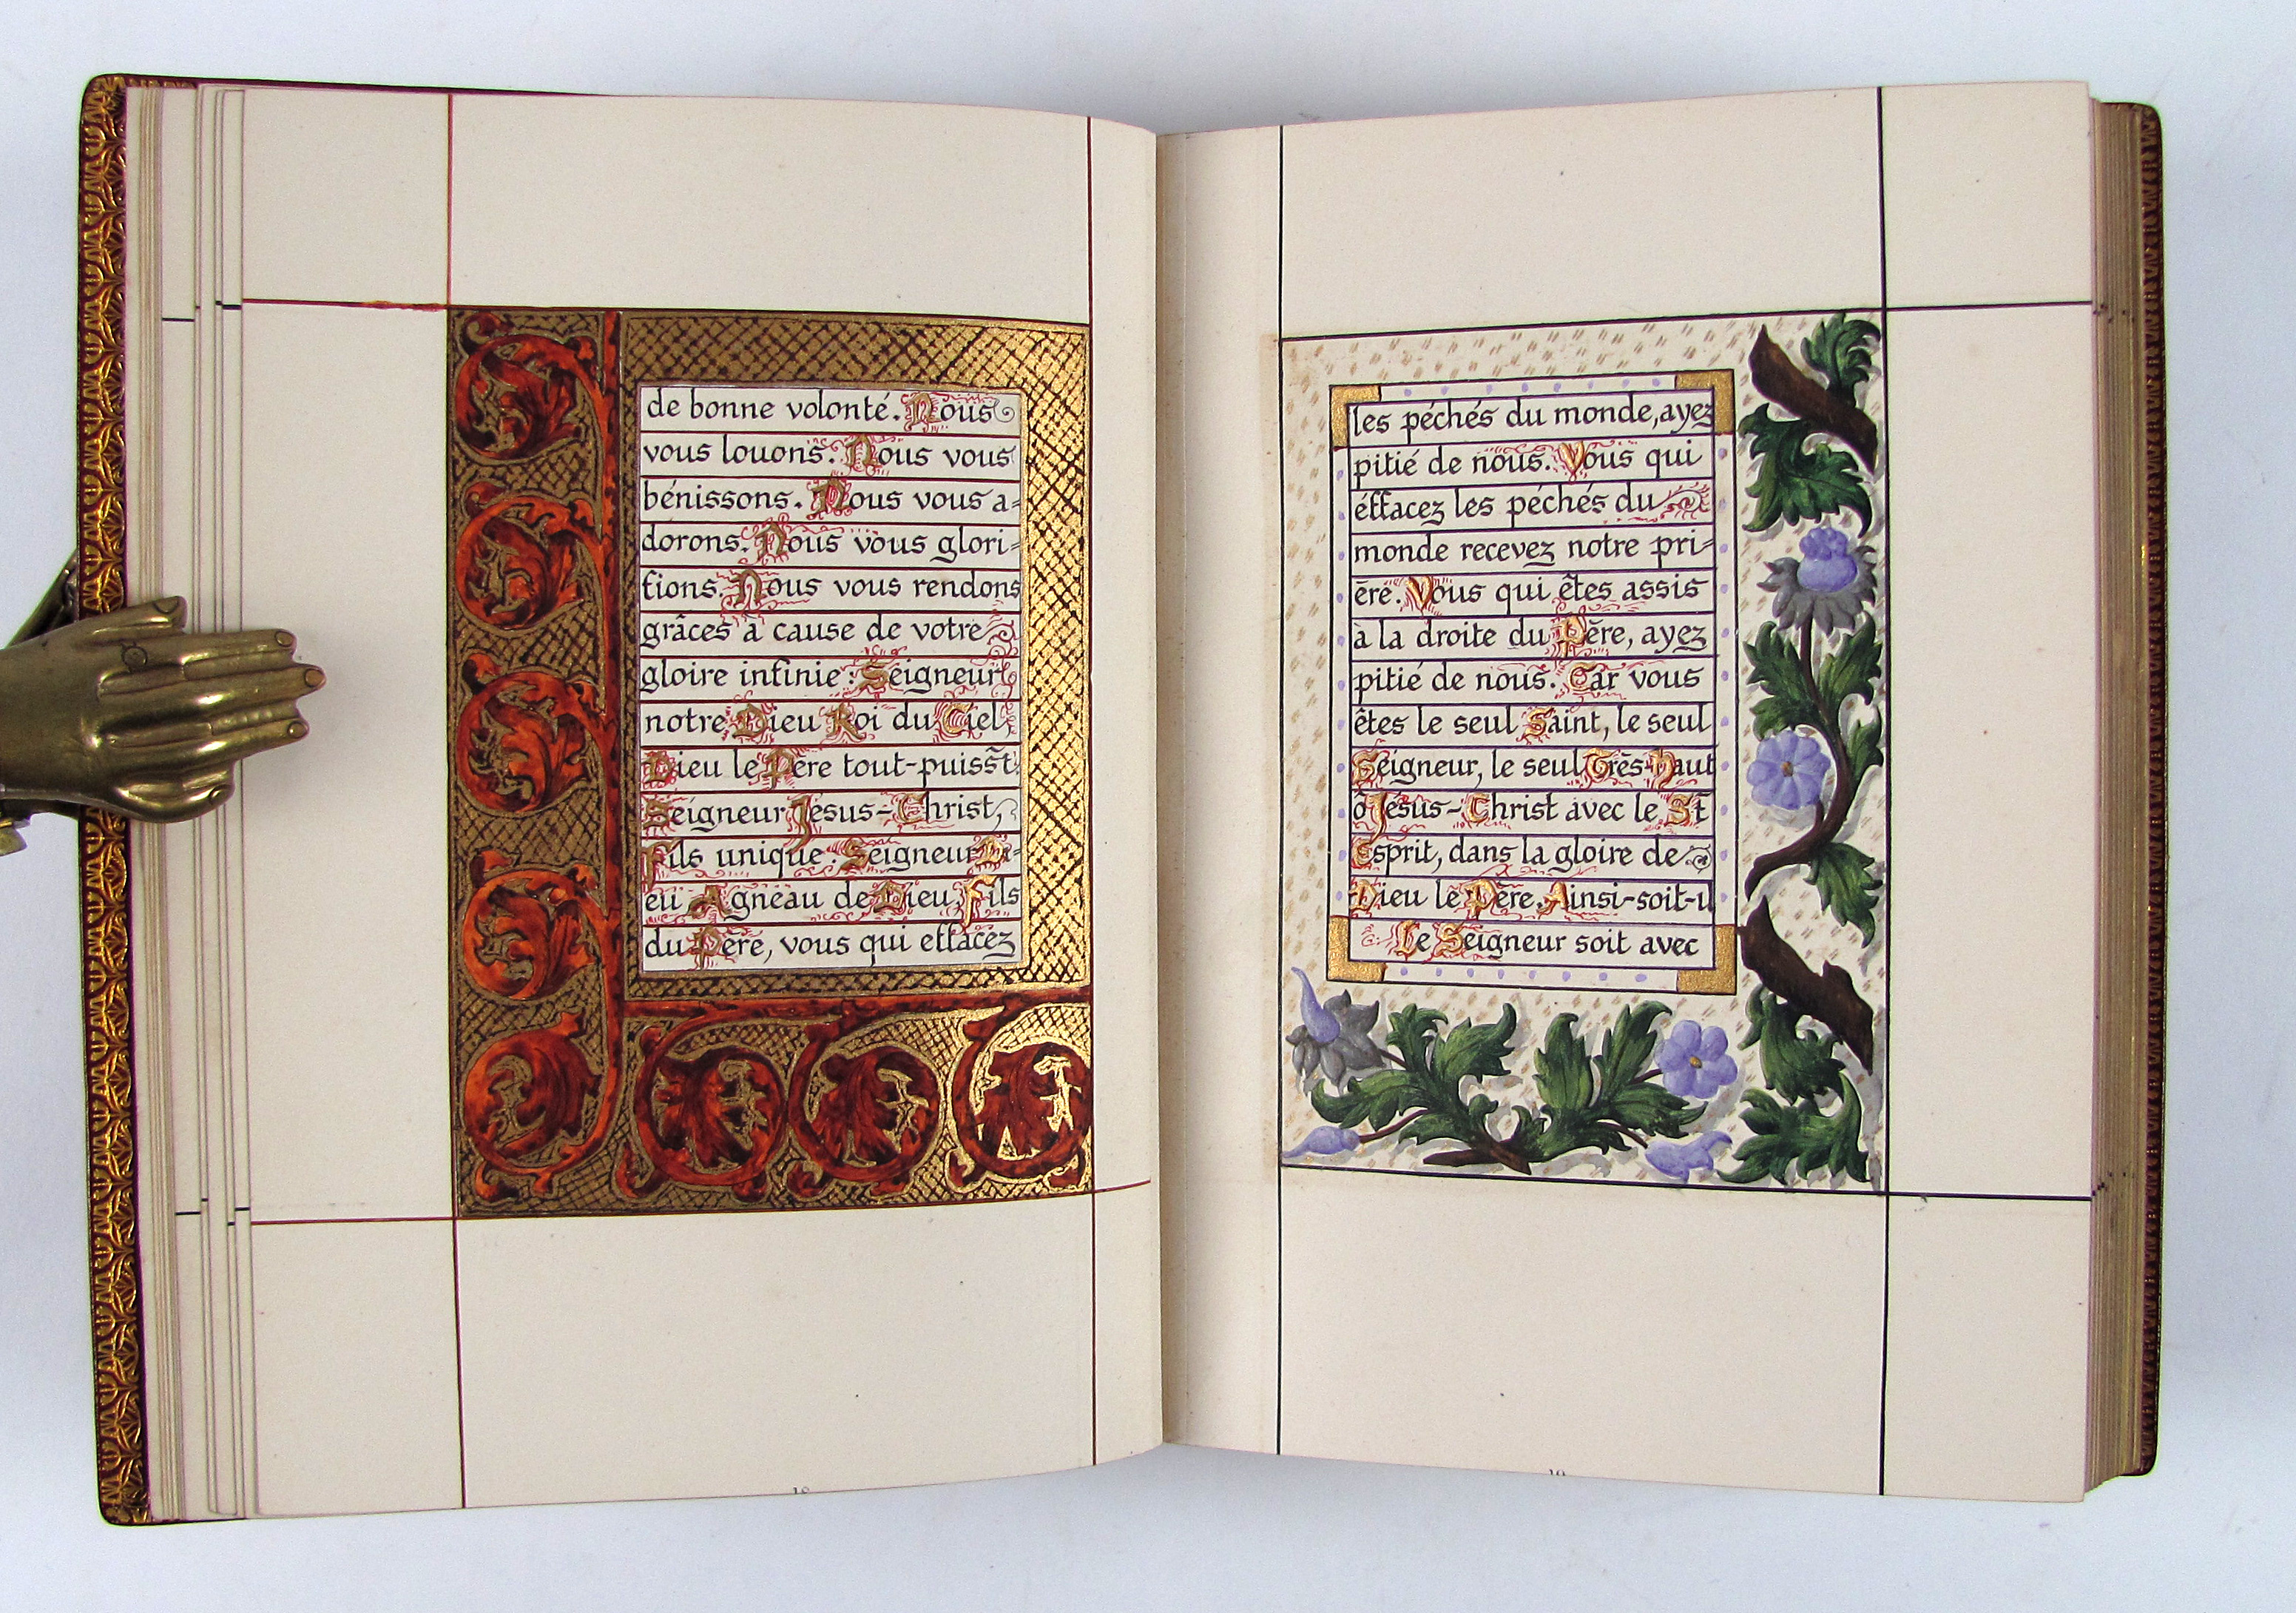 de bonne volonté. Nous
vous louons. Nous vous
bénissons. Nous vous a-
dorons. Nous vous glori-
fions. Nous vous rendons
grâces à cause de votre
gloire infinie: Seigneur,
notre Dieu Roi du Ciel,
Dieu le Père tout-puisst.
Seigneur Jésus-Christ,
Fils unique: Seigneur Di-
eu, Agneau de Dieu, Fils
du Père, vous qui effacez
18
les péchés du monde, ayez
pitié de nous. Vous qui
effacez les péchés du
monde recevez notre pri-
ère. Vous qui êtes assis
à la droite du Père, ayez
pitié de nous. Car vous
êtes le seul Saint, le seul
Seigneur, le seul Très-Haut
ô Jésus-Christ avec le St
Esprit, dans la gloire de
Dieu le Père. Ainsi-soit-il
Le Seigneur soit avec
19